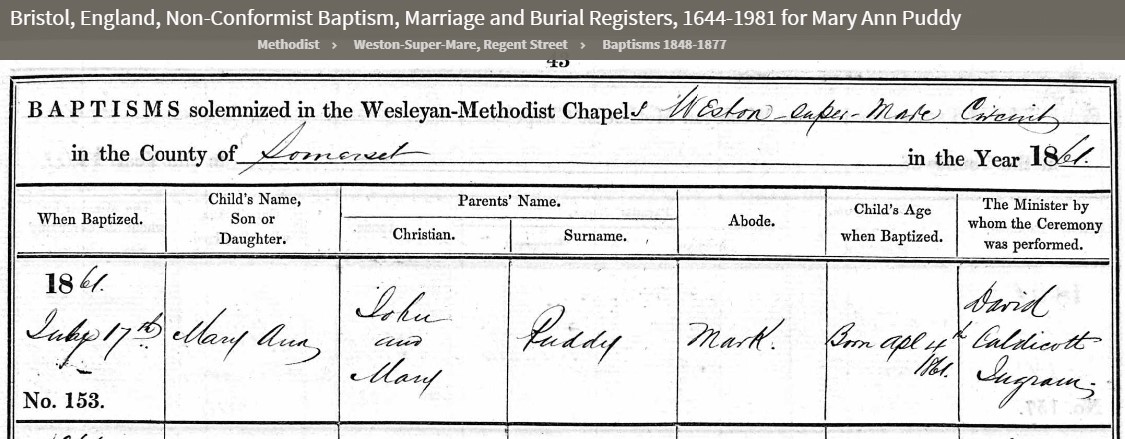 Bristol, England, Non-Conformist Baptism, Marriage and Burial Registers, 1644-1981 for Mary Ann Puddy
Methodist › Weston-Super-Mare, Regent Street › Baptisms 1848-1877
45
BAPTISMS solemnized in the Wesleyan-Methodist Chapels Weston-super-Mare Circuit
in the County of Somerset in the Year 1861.
When Baptized.
Child's Name,
Son or
Daughter.
Parents' Name.
Christian.
Surname.
Abode.
Child's Age
when Baptized.
The Minister by
whom the Ceremony
was performed.
1861.
July 17th
No. 153.
Mary Ann
John
and
Mary
Puddy
Mark.
Born apl 4th
1861.
David
Caldicott
Ingram